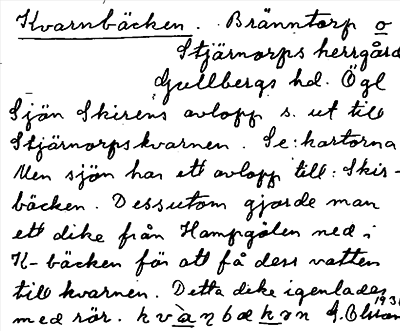 Kvarnbäcken. Bränntorp o
Stjärnorps herrgård
Gullbergs hd. Ögl
Sjön Skirens avlopp s. ut till
Stjärnorpskvarnen. Se: kartorna
Men sjön har ett avlopp till: Skir-
bäcken. Dessutom gjorde man
ett dike från Hampgölen ned i
K-bäcken för att få dess vatten
till kvarnen. Detta dike igenlades
med rör.